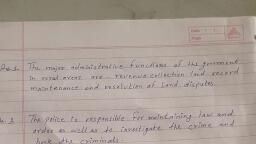 Date
Page
Ans 1. The major administrative functions of the government
in rural areas are revenue collection land record
maintenance and resolution of land disputes.
2 The police is responsible for maintaining law and
order as well as to investigate the crime and
the criminals.